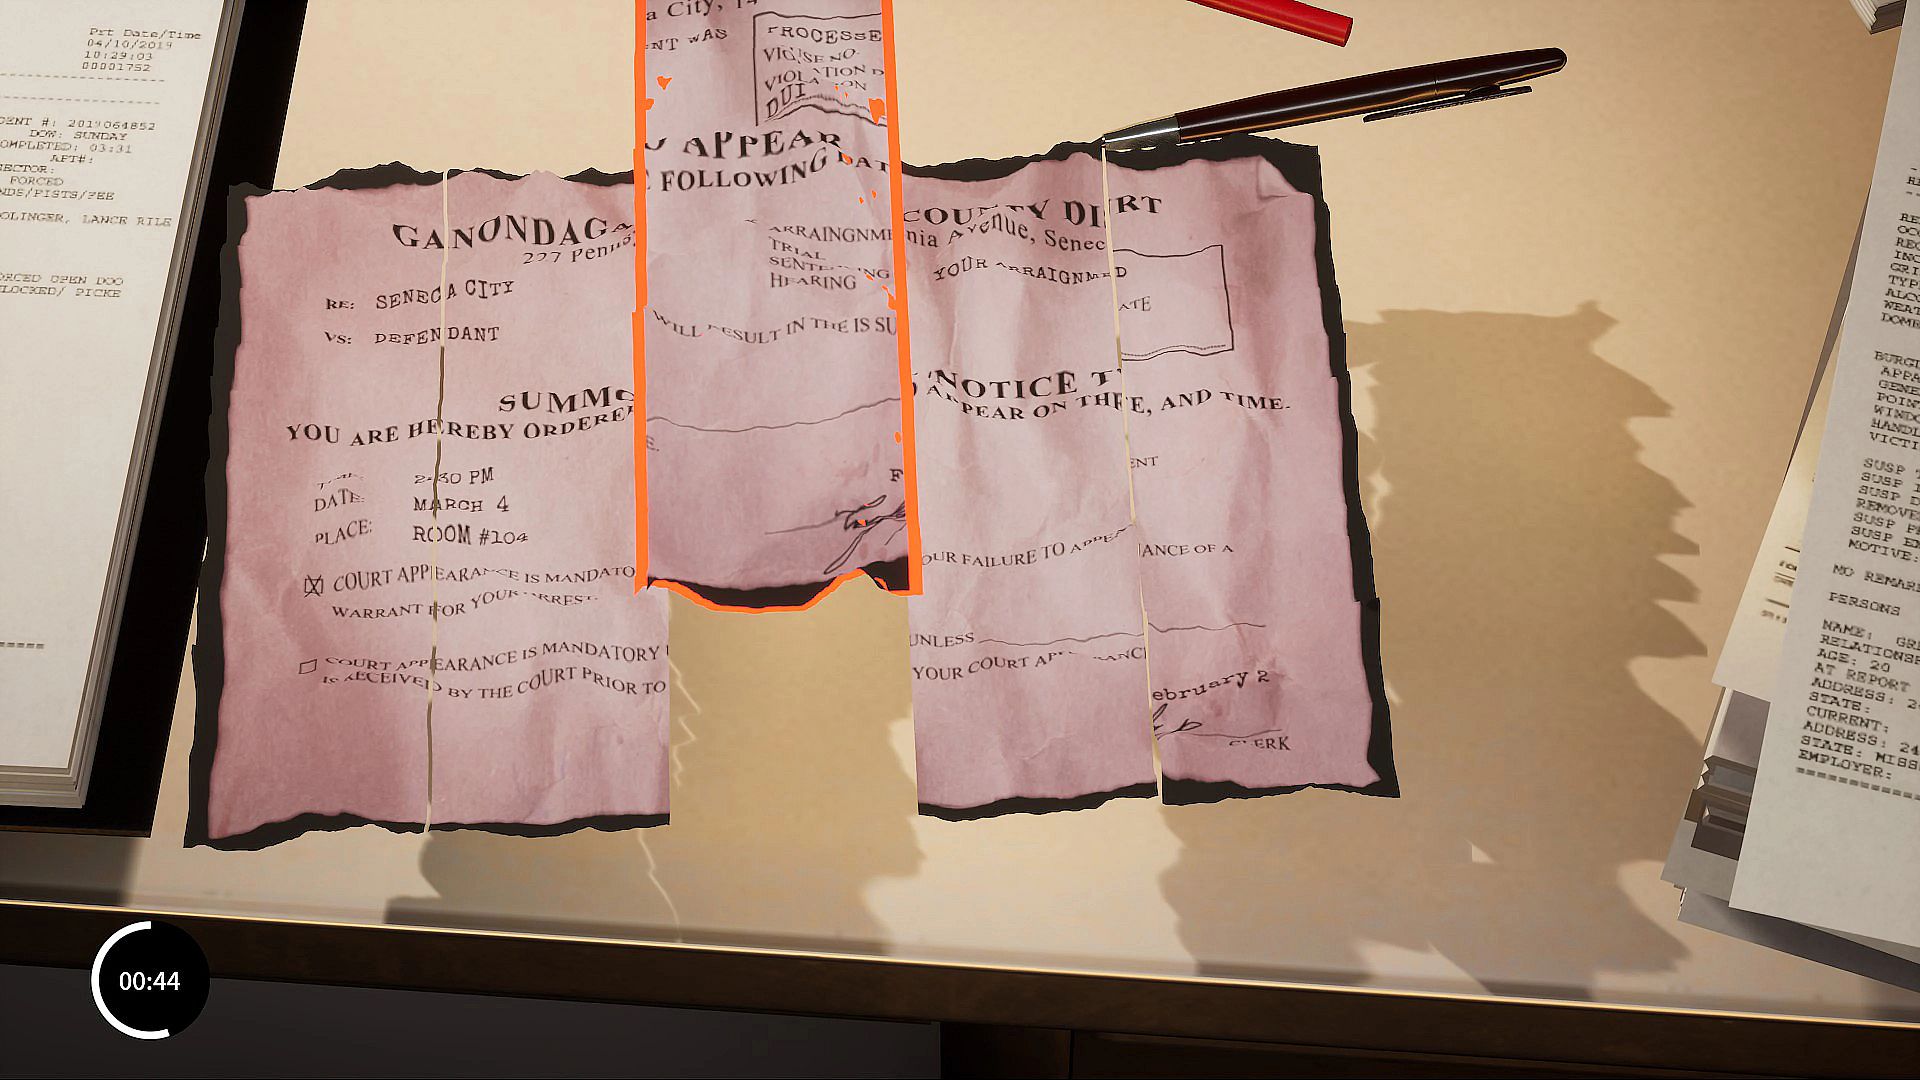 Prt Date/Time
04/10/2019
10:29:03
00001752
ENT #: 2019064852
DOW: SUNDAY
OMPLETED: 03:31
APT#:
ECTOR:
FORCED
NDS/FISTS/FEE
OLINGER, LANCE RILE
ORCED OPEN DOO
LOCKED/ PICKE
a City, 14
ENT WAS
PROCESSE
DUI
U APPEAR
E FOLLOWING DAT
ARRAINGNME
TRIAL
SENTENCING
HEARING
WILL RESULT IN THE IS SU
E.
F
GANONDAGA
227 Penn
RE: SENECA CITY
VS: DEFENDANT
SUMMO
YOU ARE HEREBY ORDERE
2:30 PM
DATE: MARCH 4
PLACE: ROOM #104
COURT APPEARANCE IS MANDATO
WARRANT FOR YOUR ARREST.
COURT APPEARANCE IS MANDATORY
IS RECEIVED BY THE COURT PRIOR TO
COUNTY DI
nia Avenue, Senec
YOUR ARRAIGNM
NOTICE T
O APPEAR ON THE
OUR FAILURE TO APPEA
UNLESS
YOUR COURT APPEARANC
RT
D
ATE
E, AND TIME.
ENT
ANCE OF A
ebruary 2
CLERK
BURGL
APPA
GENE
POIN
WINDO
HANDL
VICTI
SUSP
SUSP
SUSP D
REMOVE
SUSP
SUSP EN
MOTIVE:
NO REMAR
PERSONS
NAME: GR
RELATIONS
AGE: 20
AT REPORT
ADDRESS: 2
STATE:
CURRENT:
ADDRESS: 24
STATE: MISS
EMPLOYER:
00:44